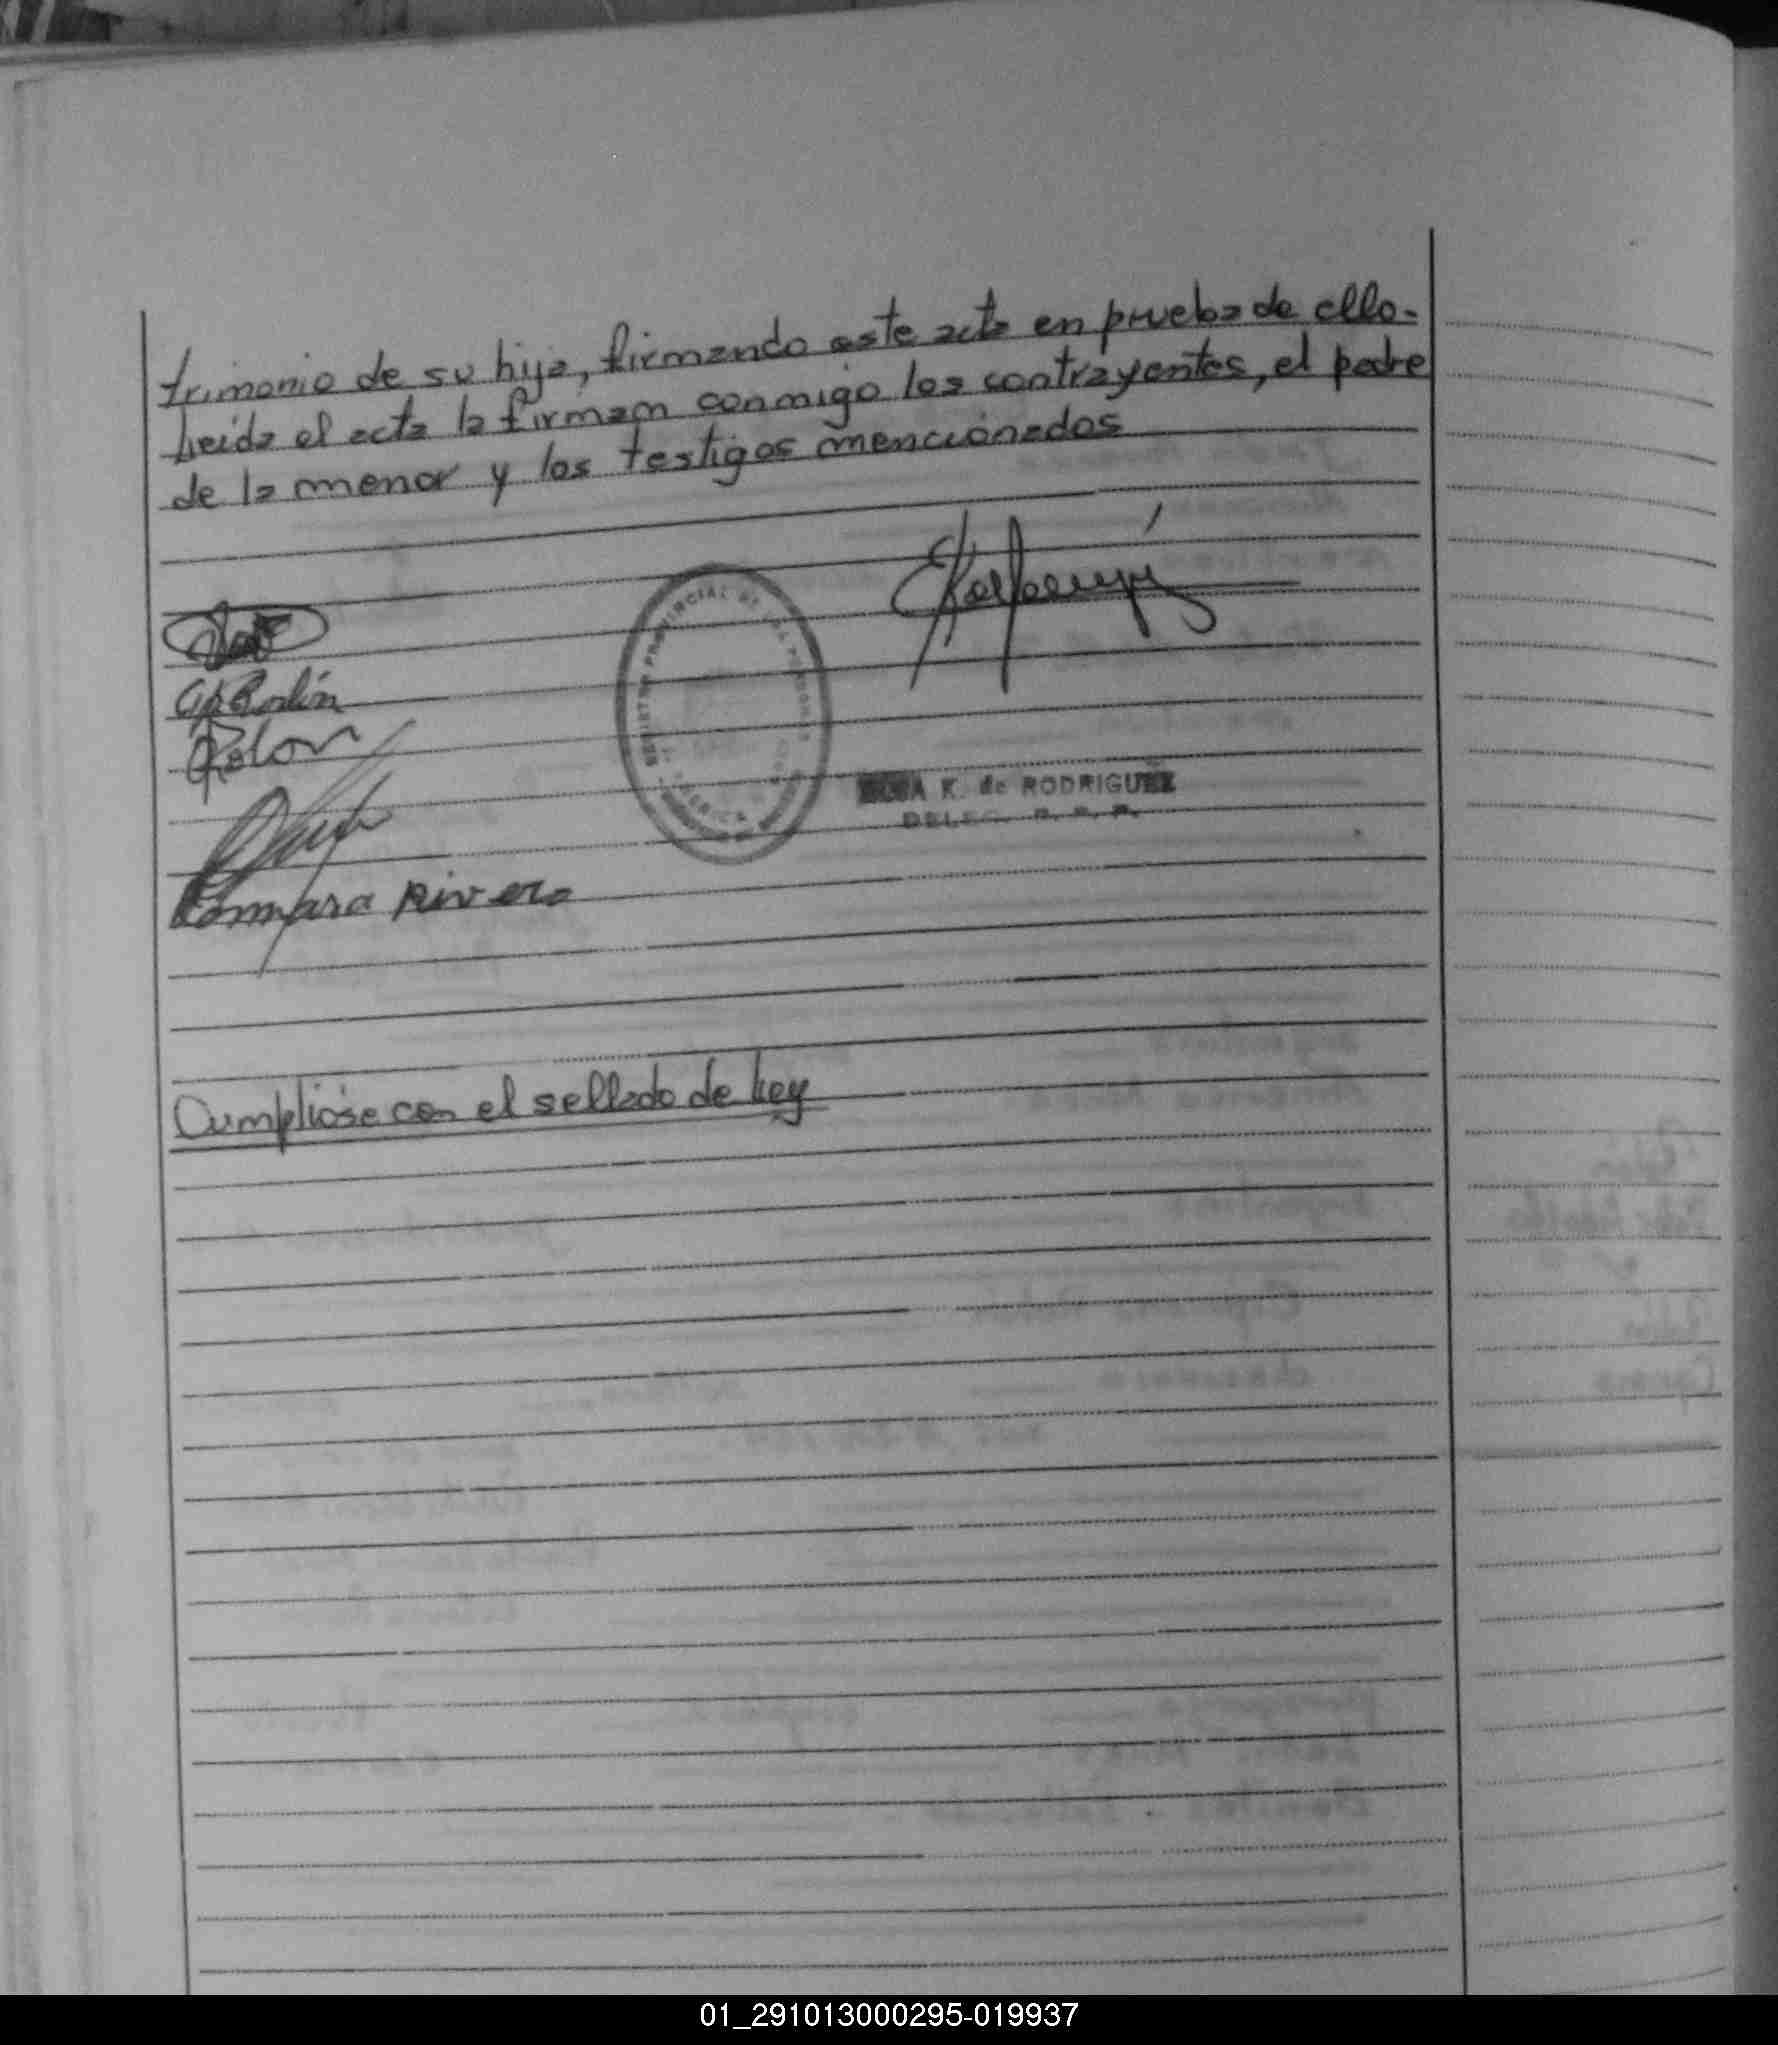 trimonio de su hija, firmando este acta en prueba de ello.
Leida el acta la firmam conmigo los contrayentes, el padre
de la menor y los testigos mencionados
REGISTRO PROVINCIAL DE LAS PERSONAS
Rolon
Ramara Rivero
K. de RODRIGUEZ
DELEG. R. P. P.
Cumpliose con el sellado de Ley
01_291013000295-019937